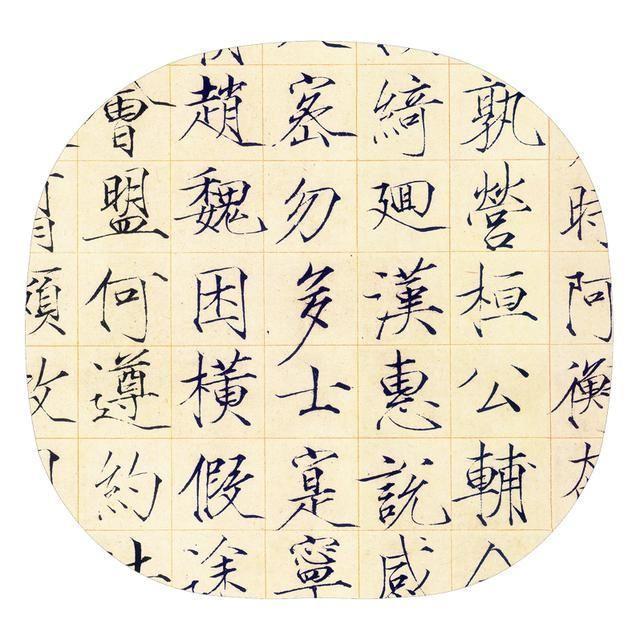 時阿衡
孰營桓公輔
綺迴漢惠說感
密勿多士寔寧
趙魏困橫假途
會盟何遵約法
頗牧